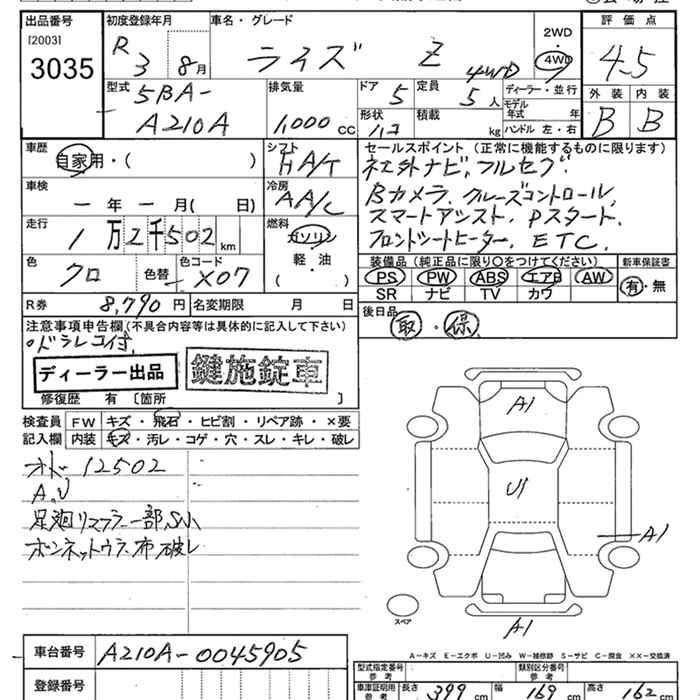 出品番号 初度登録年月 車名・グレード 評価点
[2003] R 3 8月 ライズ Z 2WD
3035 4WD 4WD 4.5
型式 排気量 ドア 定員 ディーラー・並行 外装 内装
5BA- 5 5人 モデル年式 年 B B
A210A 1,000cc 形状 積載 kg ハンドル 左・右
車歴 シフト セールスポイント(正常に機能するものに限ります)
自家用・( ) FA/T 社外ナビ,フルセグ.
車検 冷房 Bカメラ.クルーズコントロール.
ー年ー月( 日) AA/C スマートアシスト.Pスタート.
走行 燃料 フロントシートヒーター.ETC.
1万2千502km ガソリン
軽・油
( )
色 色替 色コード 装備品(純正品に限り○をつけてください) 新車保証書
クロ X07 PS PW ABS エアB AW 有・無
SR ナビ TV カワ
R券 8,790円 名変期限 月 日
後日品 取・保
注意事項申告欄(不具合内容等は具体的に記入して下さい)
ドラレコ付
ディーラー出品 鍵施錠車
修復歴 有 〔箇所 〕
検査員記入欄 FW キズ・飛石・ヒビ割・リペア跡・×要
内装 キズ・汚レ・コゲ・穴・スレ・キレ・破レ
オドー12502
A.U
足廻リマフラー一部.S小
ボンネットウラ布破レ
A1
U1
A1
スペア A1
A-キズ E-エクボ U-凹み W-補修跡 S-サビ C-腐食 XX-交換済
車台番号 A210A-0045905
型式指定番号 参考 類別区分番号 参考
登録番号 車庫証明用 参考 長さ 399cm 幅 169cm 高さ 162cm